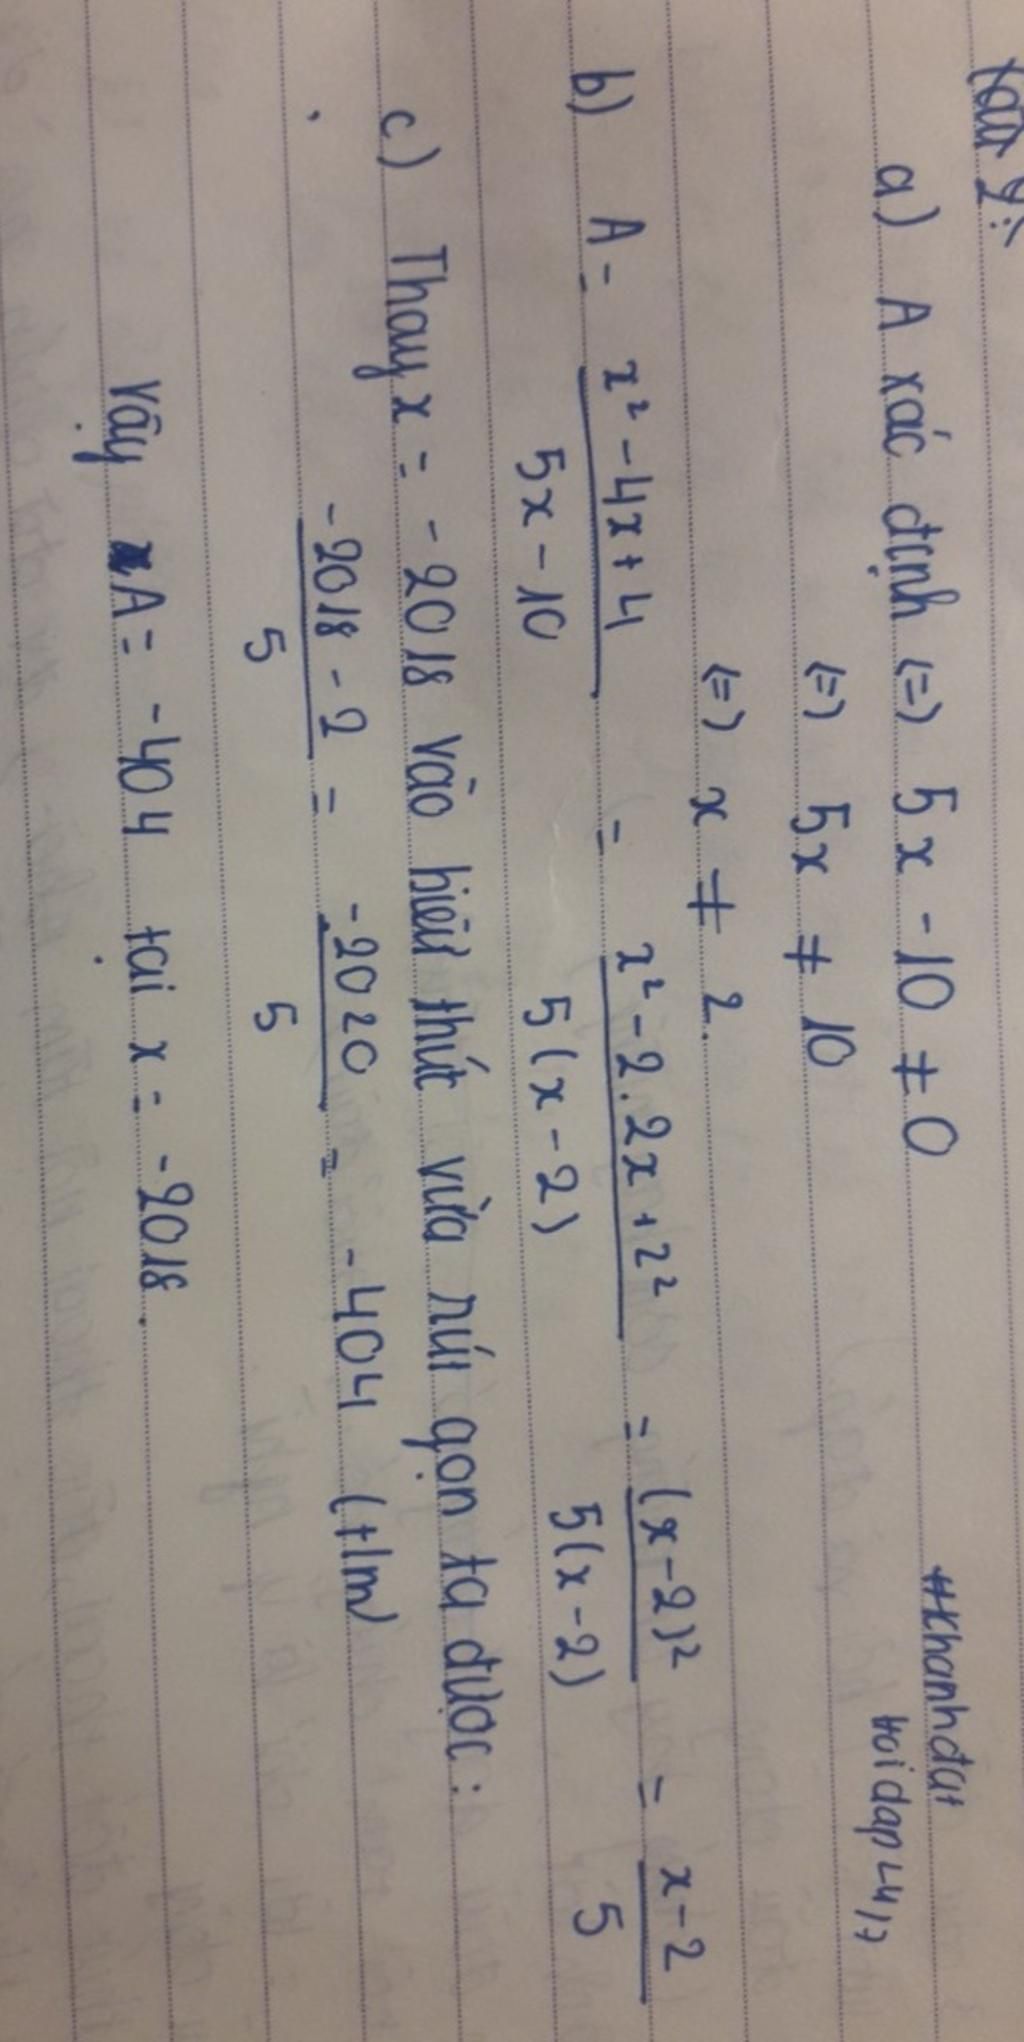 Câu 2:
#Khanhdat
hoidap247
a) A xác định (=) 5x - 10 ≠ 0
(=) 5x ≠ 10
(=) x ≠ 2.
b) A = x² - 4x + 4 / 5x - 10 = x² - 2.2x + 2² / 5(x - 2) = (x - 2)² / 5(x - 2) = x - 2 / 5
c) Thay x = - 2018 vào biểu thức vừa rút gọn ta được:
-2018 - 2 / 5 = -2020 / 5 = -404 (t/m)
Vậy A = -404 tại x = -2018.